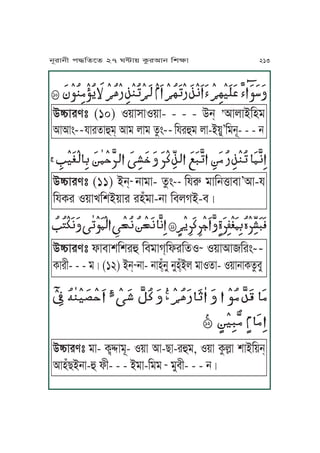 নূরানী পদ্ধতিতে ২৭ ঘণ্টায় কুরআন শিক্ষা ২১৩
وَسَوَآءٌ عَلَيْهِمْ ءَاَنْذَرْتَهُمْ اَمْ لَمْ تُنْذِرْهُمْ لَا يُؤْمِنُوْنَ ۝
উচ্চারণঃ (১০) ওয়াসাওয়া- - - - উন্ 'আলাইহিম
আআং--যারতাহুম্ আম লাম তুং-- যিরহুম লা-ইয়ু'মিনূ- - - ন
اِنَّمَا تُنْذِرُ مَنِ اتَّبَعَ الذِّكْرَ وَ خَشِىَ الرَّحْمٰنَ بِالْغَيْبِ ۚ
উচ্চারণঃ (১১) ইন্-নামা- তুং-- যিরু মানিত্তাবা'আ-য
যিকর ওয়াখশিইয়ার রহঁমা-না বিলগই-ব।
فَبَشِّرْهُ بِمَغْفِرَةٍ وَّاَجْرٍ كَرِيْمٍ ۝ اِنَّا نَحْنُ نُحْىِ الْمَوْتٰى وَنَكْتُبُ
উচ্চারণঃ ফাবাশশিরহু বিমাগ্ফিরতিও- ওয়াআজরিং--
কারী- - - ম। (১২) ইন্-না- নাহঁনু নুহঁইল মাওতা- ওয়ানাকতুবু
مَا قَدَّمُوْا وَ اٰثَارَهُمْ ؕ وَ كُلَّ شَىْءٍ اَحْصَيْنٰهُ فِىْۤ
اِمَامٍ مُّبِيْنٍ ۝
উচ্চারণঃ মা- ক্বদ্দামূ- ওয়া আ-ছা-রহুম, ওয়া কুল্লা শাইয়িন্
আহঁছইনা-হু ফী- - - ইমা-মিম - মুবী- - - ন।